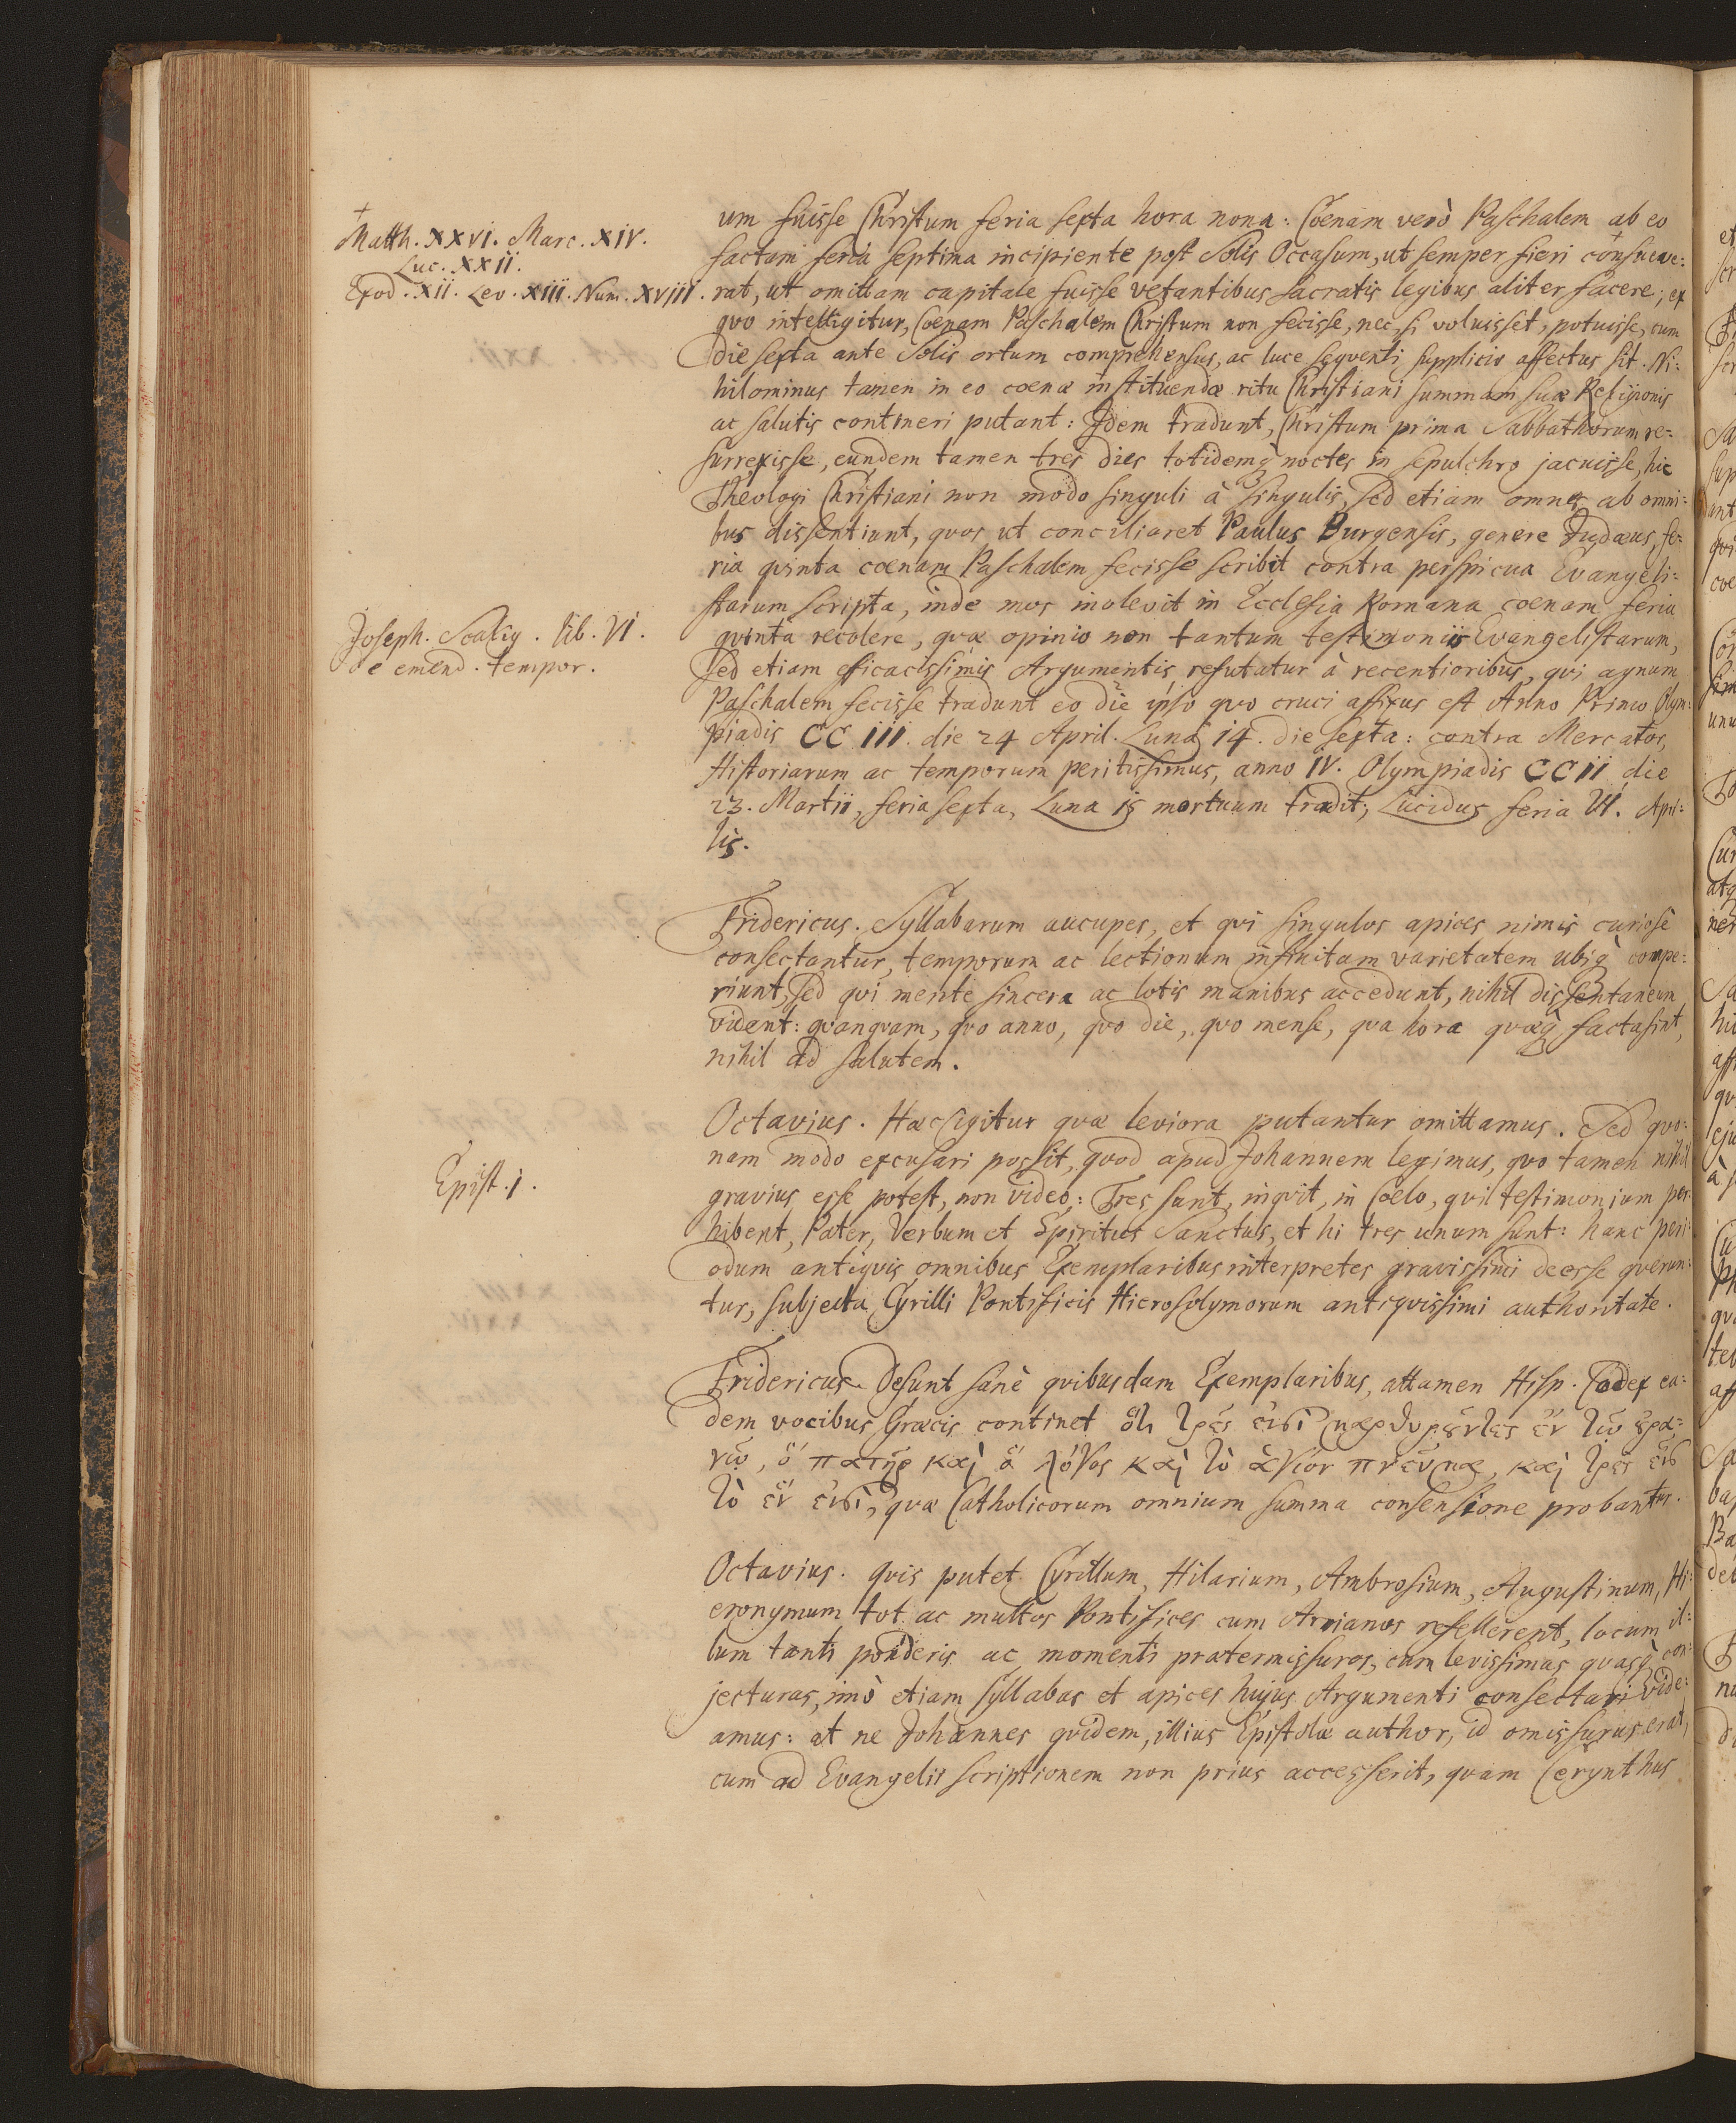 +
Matth. XXVI. Marc. XIV.
Luc. XXII.
Exod. XII. Lev. XIII. Num. XVIII.
um fuisse Christum feria sexta hora nona: Coenam verò Paschalem ab eo
factam feria septima incipiente post Solis Occasum, ut semper fieri consueve:
rat, ut omittam capitale fuisse vetantibus sacratis legibus aliter facere; ex
qvo intelligitur, Coenam Paschalem Christum non fecisse, nec, si voluisset, potuisse, cum
die sexta ante Solis ortum comprehensus, ac luce seqventi supplicio affectus sit. Ni:
hilominus tamen in eo coenæ instituendæ ritu Christiani summam suæ Religionis
ac salutis contineri putant: Idem tradunt, Christum prima Sabbathorum re:
surrexisse, eundem tamen tres dies totidemq; noctes in sepulchro jacuisse, hic
Theologi Christiani non modo singuli à singulis, sed etiam omnes ab omni:
bus dissentiunt, quos ut conciliaret Paulus Burgensis, genere Judæus, fe:
ria qvinta coenam Paschalem fecisse scribit contra perspicua Evangeli:
starum scripta, inde mos inolevit in Ecclesia Romana coenam feria
Joseph. Scalig. lib. VI.
de emend. tempor.
qvinta recolere, qvæ opinio non tantum testimoniis Evangelistarum,
sed etiam efficacissimis Argumentis refutatur à recentioribus, qvi agnum
Paschalem fecisse tradunt eo die ipso qvo cruci affixus est Anno Primo Olym:
piadis CC III. die 24 April. Luna 14. die sexta: contra Mercator,
Historiarum ac temporum peritissimus, anno IV. Olympiadis CC II, die
23. Martii, feria sexta, Luna 15 mortuum tradit; Lucidus feria VI. Apri:
lis.
Fridericus. Syllabarum aucupes, et qvi singulos apices nimis curiosè
consectantur, temporum ac lectionum infinitam varietatem ubiq; compe:
riunt, sed qvi mente sincera ac lotis manibus accedunt, nihil dissentaneum
vident: qvanqvam, qvo anno, qvo die, qvo mense, qva hora qvæq; facta sint,
nihil ad salutem.
Octavius. Hæc igitur qvæ leviora putantur omittamus. Sed qvo:
nam modo excusari possit, qvod apud Johannem legimus, qvo tamen nihil
Epist. 1.
gravius esse potest, non video: Tres sunt, inqvit, in Coelo, qvi testimonium per:
hibent, Pater, Verbum et Spiritus Sanctus, et hi tres unum sunt: hanc peri:
odum antiqvis omnibus Exemplaribus interpretes gravissimi deesse qverun:
tur, subjecta Cyrilli Pontificis Hierosolymorum antiqvissimi authoritate.
Fridericus. Desunt sanè qvibusdam Exemplaribus, attamen Hisp. Codex ea:
dem vocibus Græcis continet ὅτι τρεῖς εἰσὶ μαρτυροῦντες ἐν τῷ οὐρα:
νῷ, ὁ πατὴρ καὶ ὁ λόγος καὶ τὸ ἅγιον πνεῦμα, καὶ τρεῖς εἰς
τὸ ἕν εἰσὶ, qvæ Catholicorum omnium summa consensione probantur.
Octavius. Qvis putet Cyrillum, Hilarium, Ambrosium, Augustinum, Hi:
eronymum tot ac multos Pontifices cum Arrianos refellerent, locum il:
lum tanti ponderis ac momenti prætermissuros, cum levissimas qvasq; con:
jecturas, imò etiam syllabas et apices hujus Argumenti consectari vide:
amus: at ne Johannes qvidem, illius Epistolæ author, id omissurus erat,
cum ad Evangelii scriptionem non prius accesserit, qvam Cerynthus